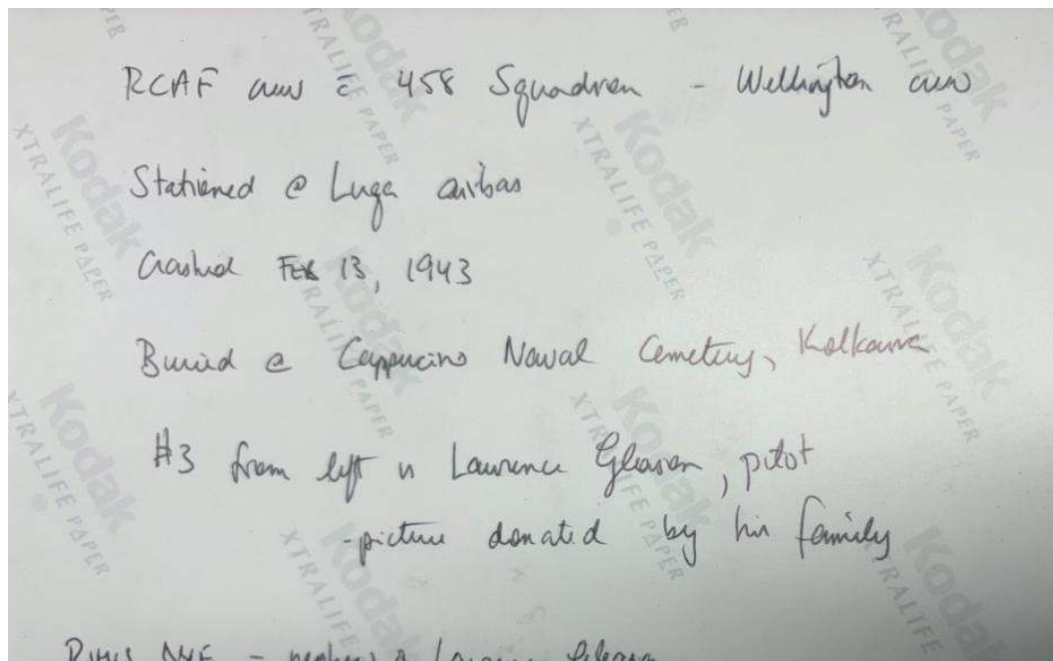 RCAF crew c̄ 458 Squadron - Wellington crew
Stationed @ Luga airbas
Crashed FEB 13, 1943
Buried @ Cappucino Naval Cemetery, Kalkara
#3 from left is Lawrence Gleason, pilot
-picture donated by his family
- nephew of Lawrence Gleason
Kodak
XTRALIFE PAPER